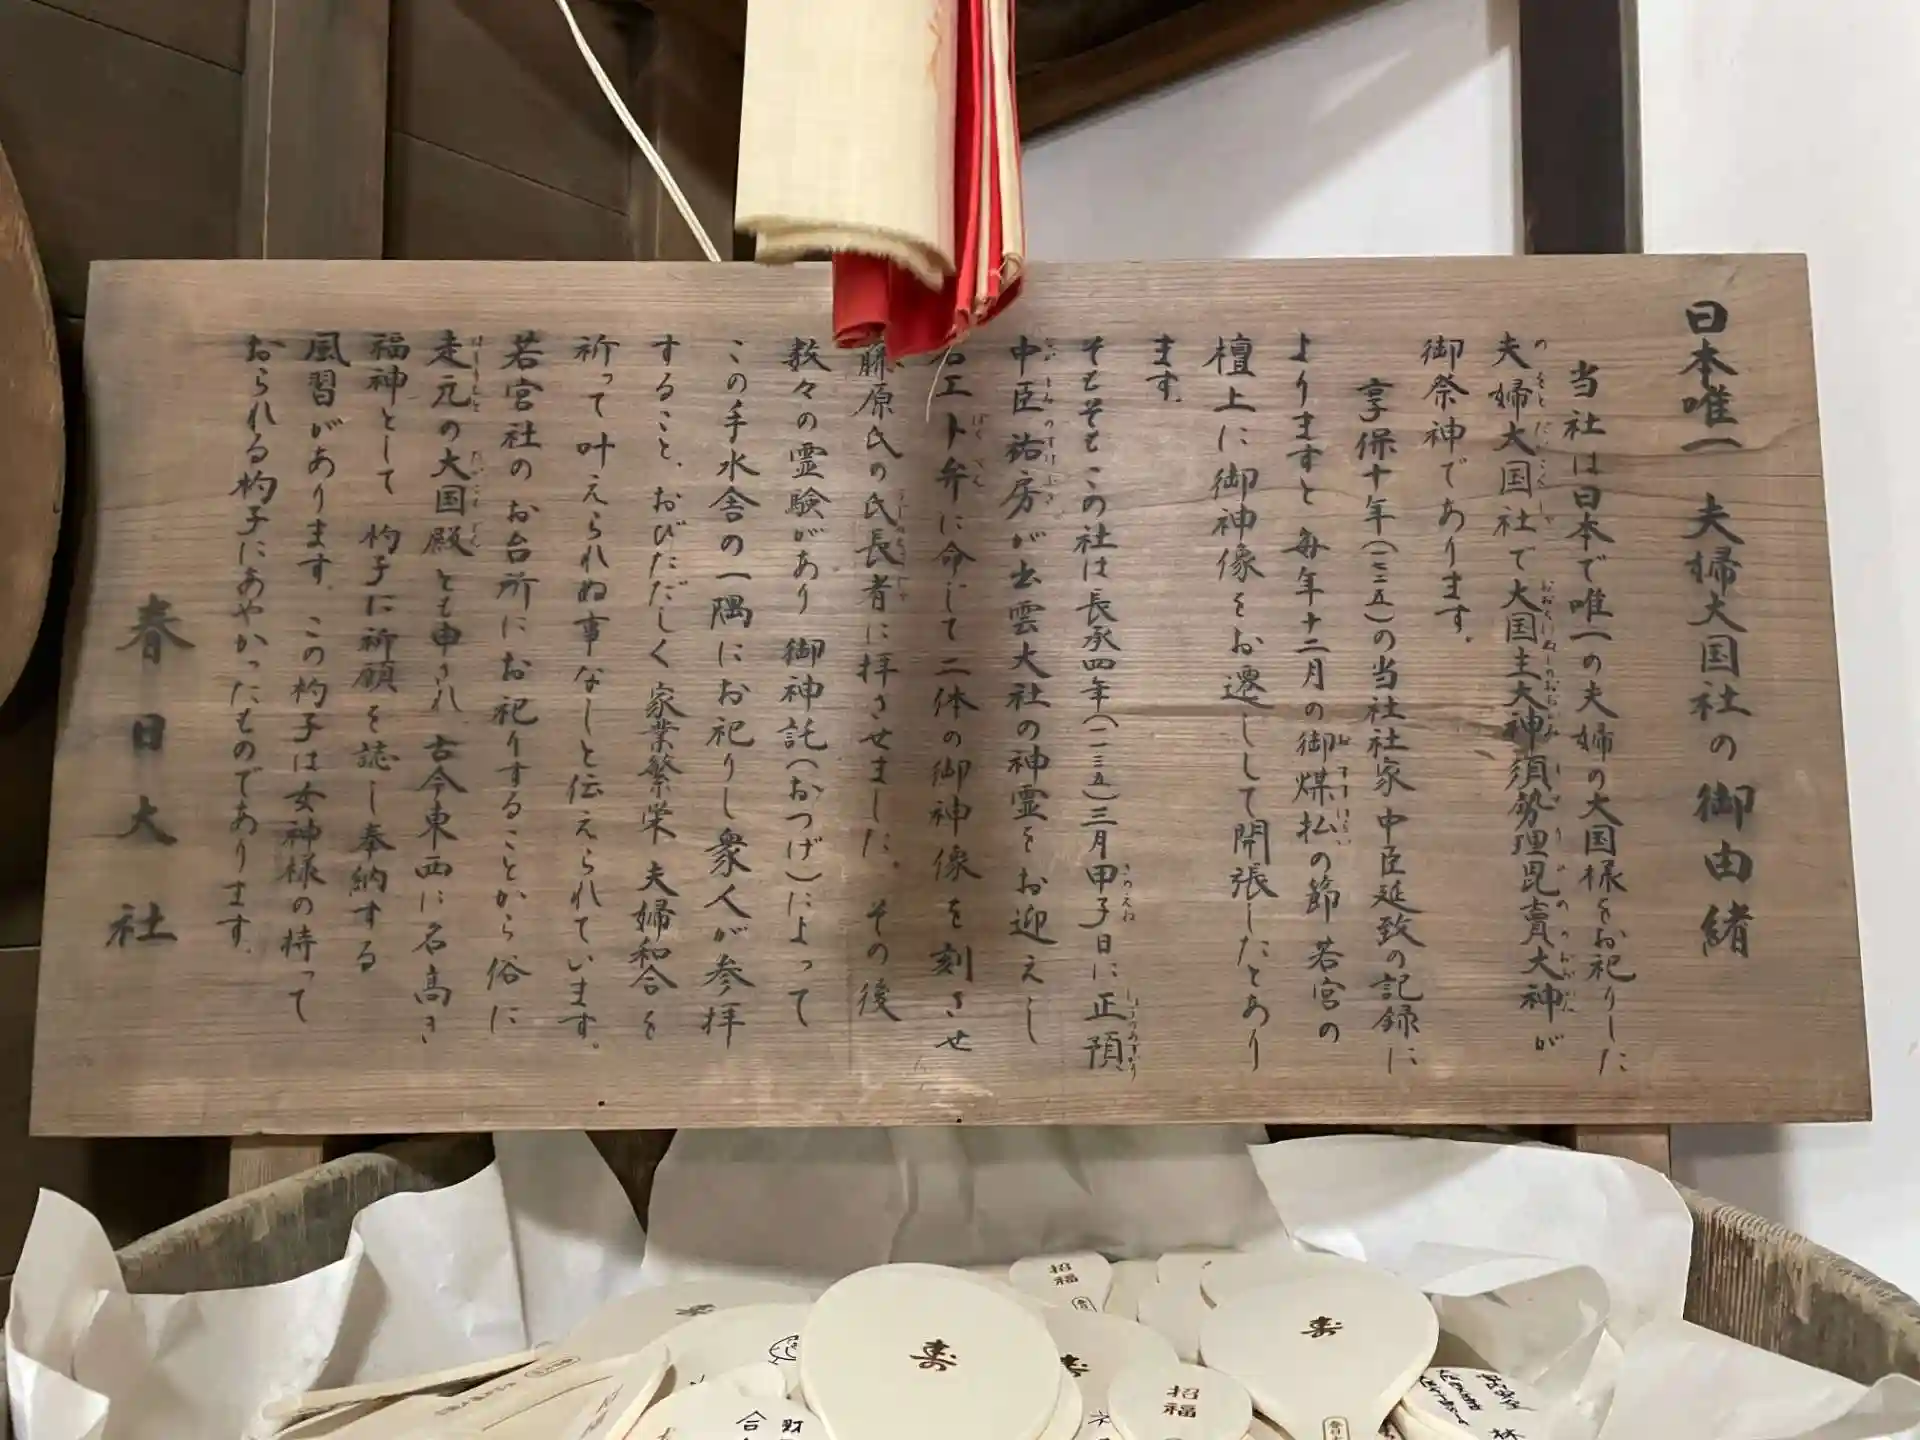 日本唯一 夫婦大国社の御由緒
当社は日本で唯一の夫婦の大国様をお祀りした
夫婦大国社で大国主大神須勢理毘賣大神が
御祭神であります。
享保十年(一七二五)の当社社家中臣延致の記録に
よりますと毎年十二月の御煤払の節若宮の
檀上に御神像をお遷しして開張したとあり
ます。
そもそもこの社は長承四年(一一三五)三月甲子日に正預
中臣祐房が出雲大社の神霊をお迎えし
名工卜弁に命じて二体の御神像を刻させ
藤原氏の氏長者に拝させました。その後
数々の霊験があり 御神託(おつげ)によって
この手水舎の一隅にお祀りし衆人が参拝
すること、おびただしく 家業繁栄 夫婦和合を
祈って叶えられぬ事なしと伝えられています。
若宮社のお台所にお祀りすることから俗に
走元の大国殿とも申され 古今東西に名高き
福神として 杓子に祈願を誌し奉納する
風習があります。この杓子は女神様の持って
おられる杓子にあやかったものであります。
春日大社
招福
寿
寿
寿
招福